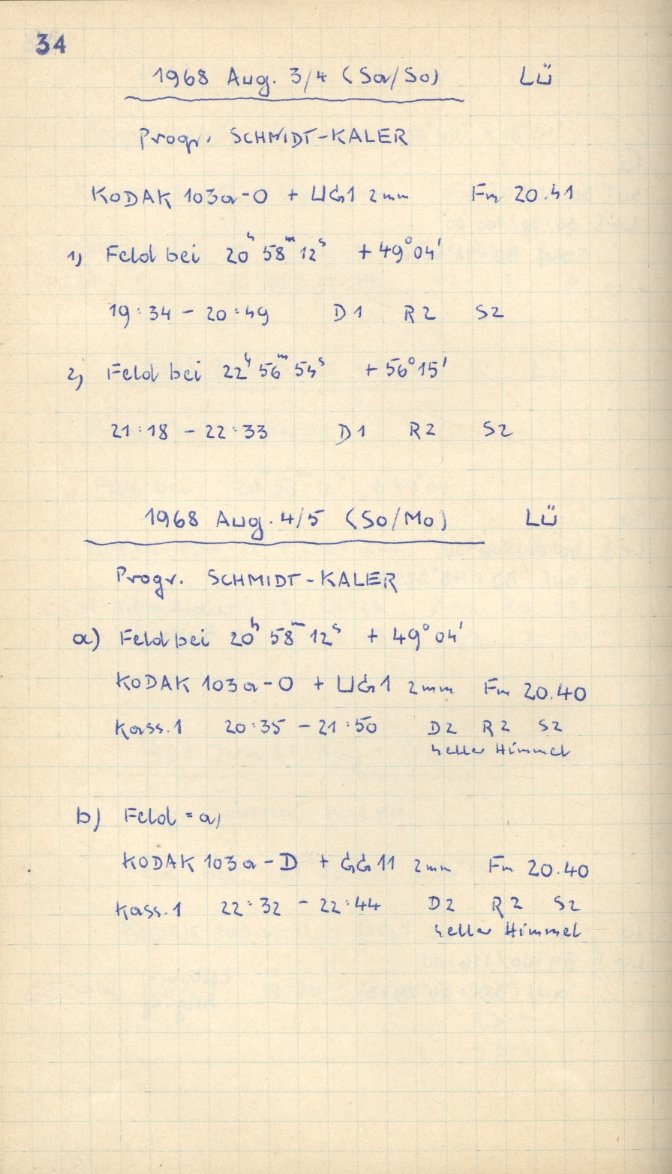 34
1968 Aug. 3/4 (Sa/So) LÜ
Progr. SCHMIDT-KALER
KODAK 103a-O + UG1 2mm Fn 20.41
1) Feld bei 20ʰ 58ᵐ 12ˢ +49° 04'
19:34 - 20:49 D1 R2 S2
2) Feld bei 22ʰ 56ᵐ 54ˢ +56° 15'
21:18 - 22:33 D1 R2 S2
1968 Aug. 4/5 (So/Mo) LÜ
Progr. SCHMIDT-KALER
a) Feld bei 20ʰ 58ᵐ 12ˢ +49° 04'
KODAK 103a-O + UG1 2mm Fn 20.40
Kass. 1 20:35 - 21:50 D2 R2 S2
heller Himmel
b) Feld = a)
KODAK 103a-D + GG11 2mm Fn 20.40
Kass. 1 22:32 - 22:44 D2 R2 S2
heller Himmel